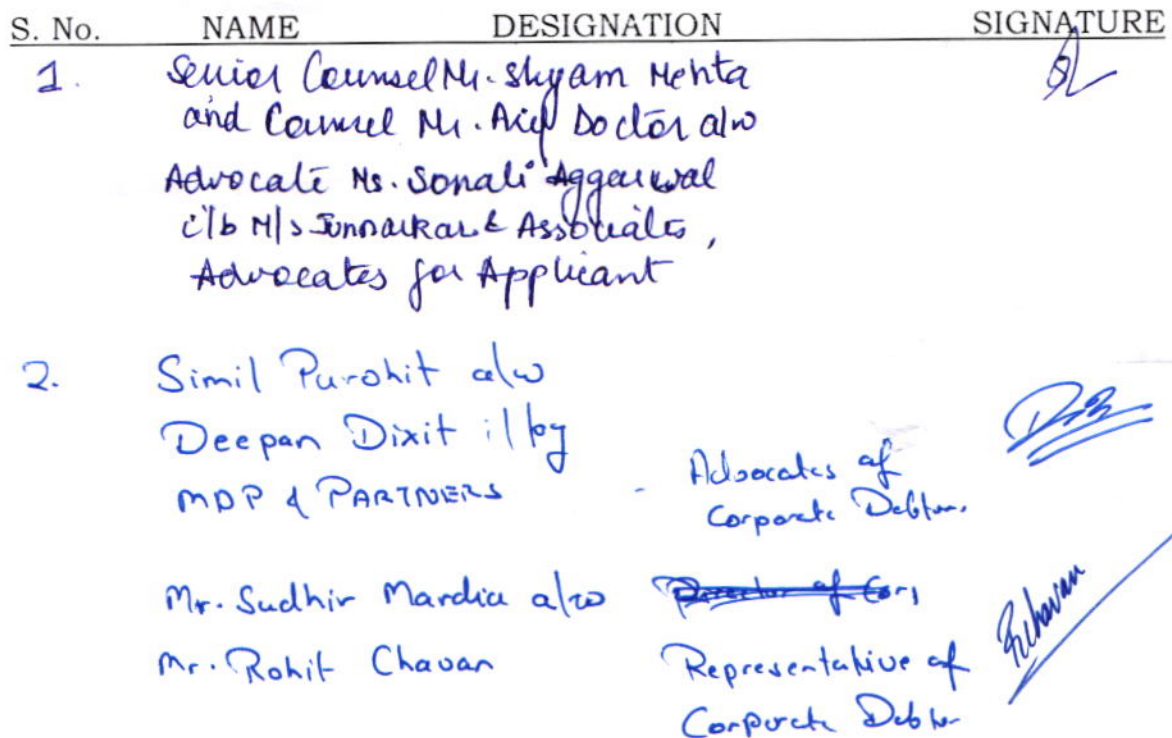 S. No. NAME DESIGNATION SIGNATURE
1. Senior Counsel Mr. Shyam Mehta
and Counsel Mr. Doctor a/w
Advocate Ms. Sonali Aggarwal
i/b M/s Junnarkar & Associates,
Advocates for Applicant
2. Simil Purohit a/w
Deepan Dixit i/by
MDP & PARTNERS - Advocates of
Corporate Debtor.
Mr. Sudhir Mardia a/w Director of Cor
Mr. Rohit Chavan Representative of
Corporate Debtor
RChavan